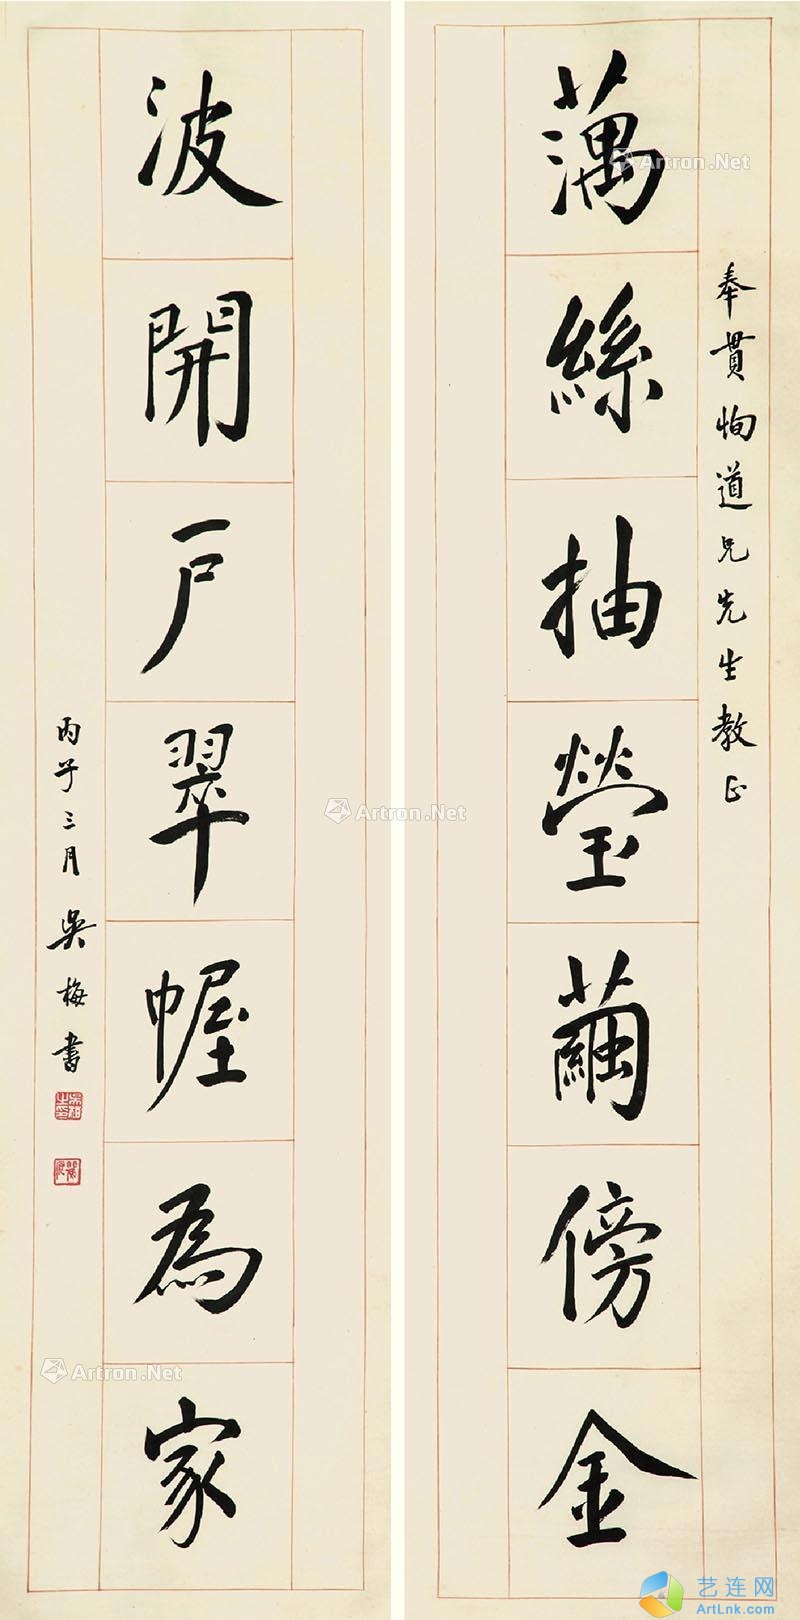 奉貫恂道兄先生教正
蕅絲抽瑩繭傍金
波開戶翠幄為家
丙子三月吳梅書
Artron.Net
Artron.Net
Artron.Net
Artron.Net
艺连网
ArtLnk.com